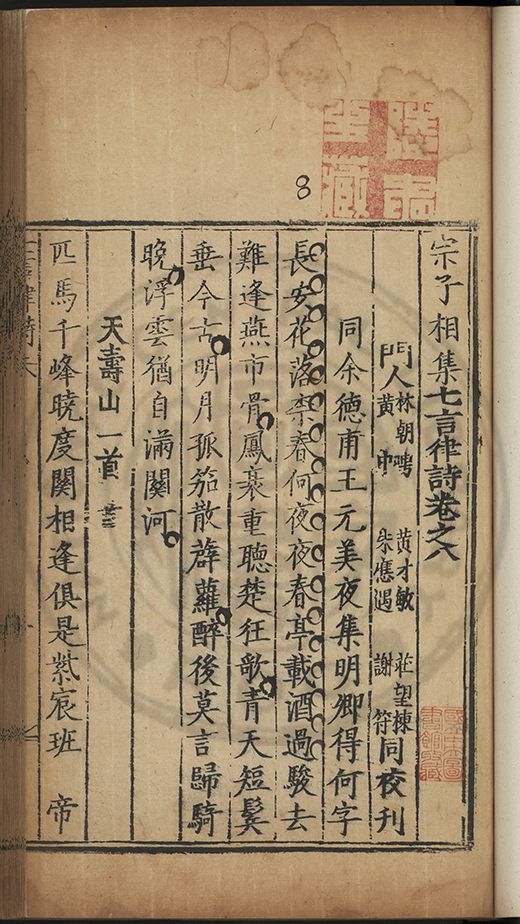 8
宗子相集七言律詩卷之八
門人
林朝
黃中
黃才敏
朱應遇
莊望棟
謝符
同校刊
同余德甫王元美夜集明卿得何字
長安花落柰春何夜夜春亭載酒過駿去
難逢燕市骨鳳衰重聽楚狂歌青天短鬢
垂今古明月孤笳散薜蘿醉後莫言歸騎
晚浮雲猶自滿關河
天壽山一首
匹馬千峰曉度關相逢俱是紫宸班 帝